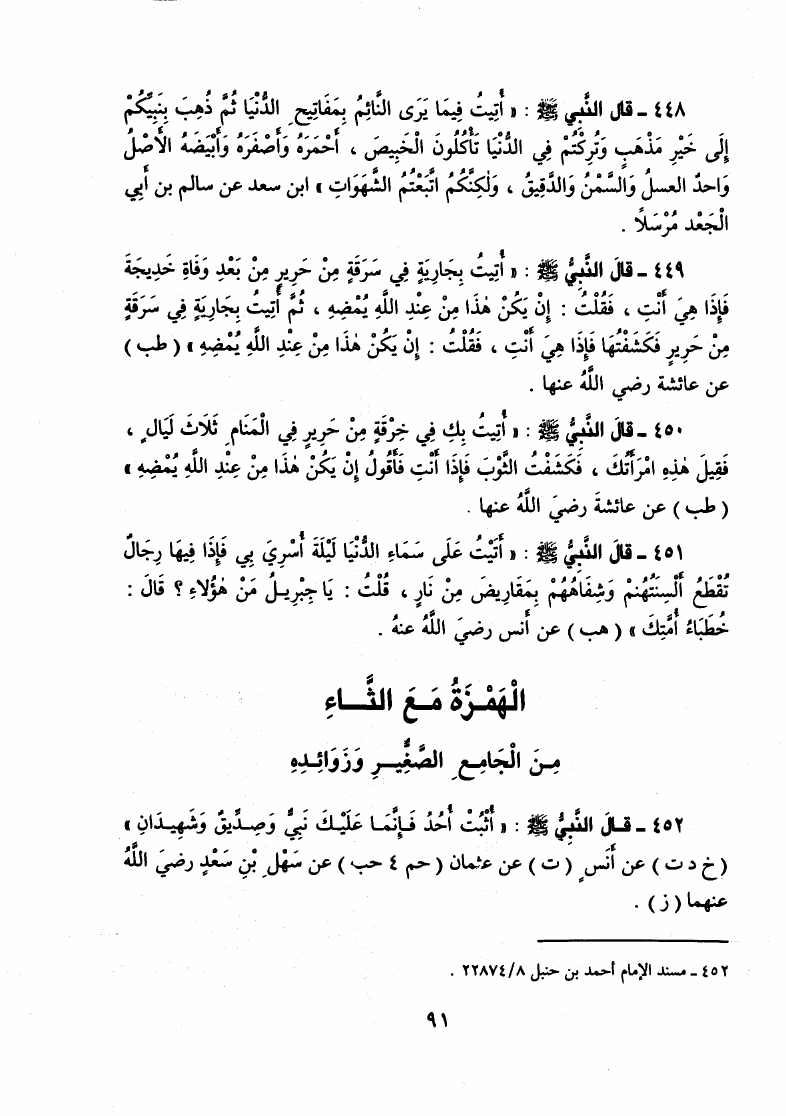 ٤٤٨ - قال النَّبي ﷺ : « أُتِيتُ فِيمَا يَرَى النَّائِمُ بِمَفَاتِيحِ الدُّنْيَا ثُمَّ ذُهِبَ بِنَبِيِّكُمْ
إِلَى خَيْرِ مَذْهَبٍ وَتُرِكْتُمْ فِي الدُّنْيَا تَأْكُلُونَ الْخَبِيصَ ، أَحْمَرَهُ وَأَصْفَرَهُ وَأَبْيَضَهُ الأَصْلُ
وَاحدٌ العسلُ وَالسَّمْنُ وَالدَّقِيقُ ، وَلٰكِنَّكُمُ اتَّبَعْتُمُ الشَّهَوَاتِ » ابن سعد عن سالم بن أَبي
الْجَعْد مُرْسَلًا .
٤٤٩ - قالَ النَّبيُّ ﷺ : « أُتِيتُ بِجَارِيَةٍ فِي سَرَقَةٍ مِنْ حَرِيرٍ مِنْ بَعْدِ وَفَاةِ خَدِيجَةَ
فَإِذَا هِيَ أَنْتِ ، فَقُلْتُ : إِنْ يَكُنْ هٰذَا مِنْ عِنْدِ اللَّهِ يُمْضِهِ ، ثُمَّ أُتِيتُ بِجَارِيَةٍ فِي سَرَقَةٍ
مِنْ حَرِيرٍ فَكَشَفْتُهَا فَإِذَا هِيَ أَنْتِ ، فَقُلْتُ : إِنْ يَكُنْ هٰذَا مِنْ عِنْدِ اللَّهِ يُمْضِهِ » ( طب )
عن عائشة رضي اللَّهُ عنها .
٤٥٠ - قالَ النَّبيُّ ﷺ : « أُتِيتُ بِكِ فِي خِرْقَةٍ مِنْ حَرِيرٍ فِي الْمَنَامِ ثَلَاثَ لَيَالٍ ،
فَقِيلَ هٰذِهِ امْرَأَتُكَ ، فَكَشَفْتُ الثَّوْبَ فَإِذَا أَنْتِ فَأَقُولُ إِنْ يَكُنْ هٰذَا مِنْ عِنْدِ اللَّهِ يُمْضِهِ »
( طب ) عن عائشةَ رضيَ اللَّهُ عنها .
٤٥١ - قالَ النَّبيُّ ﷺ : « أَتَيْتُ عَلَى سَمَاءِ الدُّنْيَا لَيْلَةَ أُسْرِيَ بِي فَإِذَا فِيهَا رِجَالٌ
تُقْطَعُ أَلْسِنَتُهُمْ وَشِفَاهُهُمْ بِمَقَارِيضَ مِنْ نَارٍ ، قُلْتُ : يَا جِبْرِيلُ مَنْ هٰؤُلَاءِ ؟ قَالَ :
خُطَبَاءُ أُمَّتِكَ » ( هب ) عن أنس رضيَ اللَّهُ عنهُ .
الْهَمْزَةُ مَعَ الثَّاءِ
مِنَ الْجَامِعِ الصَّغِيرِ وَزَوَائِدِهِ
٤٥٢ - قالَ النَّبيُّ ﷺ : « أُثْبُتْ أُحُدُ فَإِنَّمَا عَلَيْكَ نَبِيٌّ وَصِدِّيقٌ وَشَهِيدَانِ »
( خ د ت ) عن أنسٍ ( ت ) عن عثمان ( حم ٤ حب ) عن سَهْلِ بْنِ سَعْدٍ رضيَ اللَّهُ
عنهما ( ز ) .
٤٥٢ - مسند الإمام أحمد بن حنبل ٢٢٨٧٤/٨ .
٩١